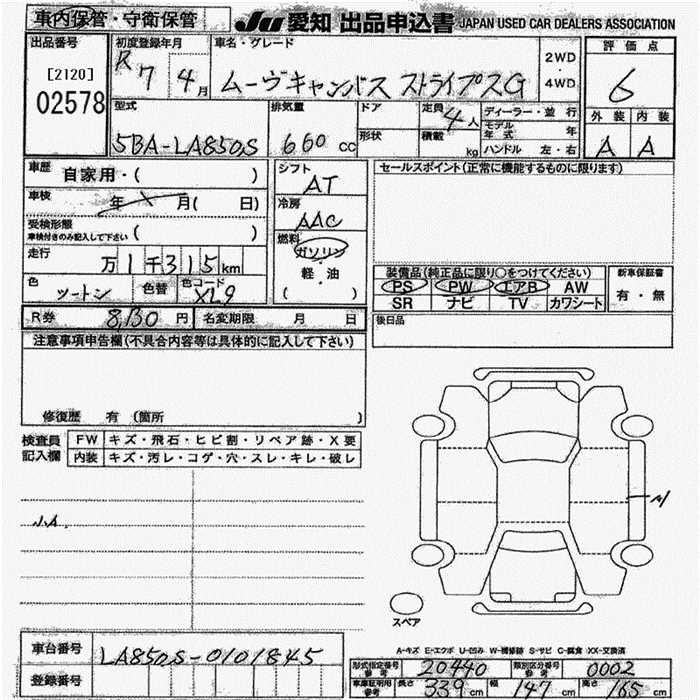 車内保管・守衛保管
JU 愛知 出品申込書 JAPAN USED CAR DEALERS ASSOCIATION
出品番号 初度登録年月 車名・グレード 評価点
[2120] R 7 4月 ムーヴキャンバス ストライプスG 2WD・4WD 6
02578
型式 排気量 ドア 定員 ディーラー・並行 外装 内装
5BA-LA850S 660cc 4人 モデル年式 年 A A
形状 積載 kg ハンドル 左・右
車歴 自家用・( ) シフト AT セールスポイント(正常に機能するものに限ります)
車検 年 月( 日) 冷房 AAC
受検形態 車検付きのみ記入して下さい ( ) 燃料 ガソリン・軽・油 ( )
走行 万1千315km
色 ツートン 色替 色コード XL9
装備品(純正品に限り○をつけてください) 新車保証書
PS PW エアB AW 有・無
SR ナビ TV カワシート
R券 8,130円 名変期限 月 日 後日品
注意事項申告欄(不具合内容等は具体的に記入して下さい)
修復歴 有(箇所 )
検査員記入欄 FW キズ・飛石・ヒビ割・リペア跡・X要
内装 キズ・汚レ・コゲ・穴・スレ・キレ・破レ
スペア
A-キズ E-エクボ U-凹み W-補修跡 S-サビ C-腐食 XX-交換済
車台番号 LA850S-0101845
登録番号
形式指定番号参考 20440 類別区分番号参考 0002
車庫証明用参考 長さ 339cm 幅 147cm 高さ 165cm